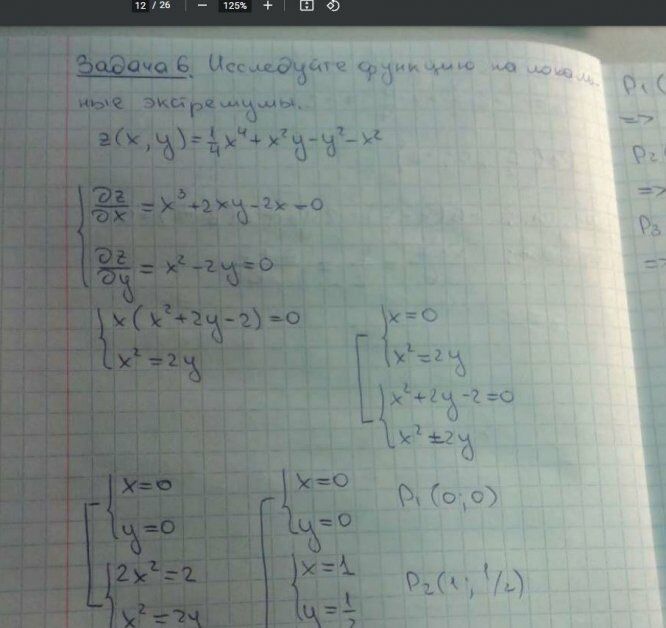 12 / 26 — 125% +
Задача 6. Исследуйте функцию на локаль-
ные экстремумы.
z(x, y) = 1/4 x⁴ + x²y - y² - x²
∂z/∂x = x³ + 2xy - 2x = 0
∂z/∂y = x² - 2y = 0
x(x² + 2y - 2) = 0
x² = 2y
x = 0
x² = 2y
x² + 2y - 2 = 0
x² = 2y
x = 0
y = 0
2x² = 2
x² = 2y
x = 0
y = 0
x = 1
y = 1/2
P₁(0; 0)
P₂(1; 1/2)
P₁(
=>
P₂
=>
P₃
=>